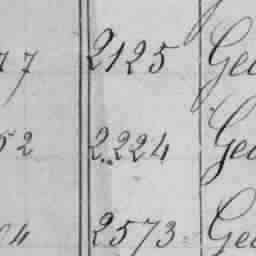 77 2125 Geo
52 2224 Geo
04 2573 Geo